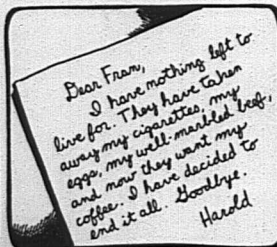 Dear Fran,
I have nothing left to
live for. They have taken
away my cigarettes, my
eggs, my well-marbled beef,
and now they want my
coffee. I have decided to
end it all. Goodbye.
Harold